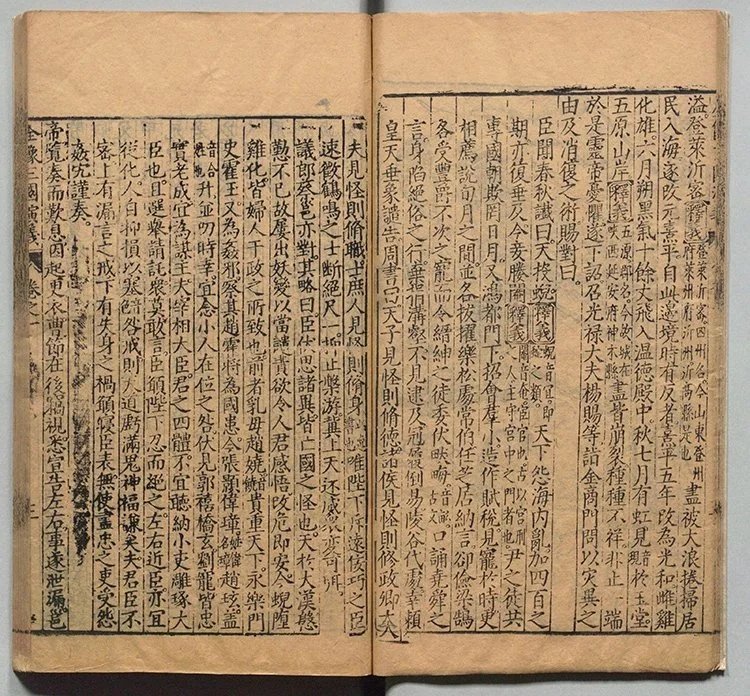 溢登萊沂密釋義登萊沂密四州名今山東登州府萊州府沂州沂高縣是也盡被大浪捲掃居
民入海遂改元熹平自此邊境時有反者熹平五年改為光和雌雞
化雄六月朔黑氣十餘丈飛入溫德殿中秋七月有虹見音現於玉堂
五原山岸釋義五原郡名今故城在陝西延安府神木縣盡皆崩裂種種不祥非止一端
於是靈帝憂懼遂下詔召光祿大夫楊賜等詣金商門問以災異之
由及消復之術賜對曰
臣聞春秋讖曰天投蜺釋義蜺音宜即虹之類天下怨海內亂加四百之
期亦復垂及今妾媵閹釋義閹音奄宦官也古以宮刑之人主守宮中之門者也尹之徒共
專國朝欺罔日月又鴻都門下招會羣小造作賦稅見寵於時更
相薦說旬月之間並各拔擢樂松處常伯任芝居納言卻儉梁鵠
各受豐爵不次之寵而令縉紳之徒委伏畎畮口誦堯舜之
言身陷絕俗之行棄捐溝壑不見逮及冠履倒易陵谷代處幸賴
皇天垂象譴告周書曰天子見怪則脩德諸侯見怪則修政卿大
夫見怪則脩職士庶人見怪則脩身唯陛下斥遠佞巧之臣
速徵鶴鳴之士斷絕尺一抑止槃游冀上天還威衆變可弭
議郎蔡邕亦對其略曰臣伏思諸異皆亡國之怪也天於大漢慇
懃不已故屢出妖變以當譴責欲令人君感悟改危即安今蜺墮
雞化皆婦人干政之所致也前者乳母趙嬈貴重天下永樂門
史霍玉又為姦邪察其趙霍將為國患今張顥偉璋趙玹蓋
升並叨時幸宜念小人在位之咎伏見郭禧橋玄劉寵皆忠
實老成宜為謀主夫宰相大臣君之四體不宜聽納小吏雕琢大
臣也且選舉請託衆莫敢言臣願陛下忍而絕之左右近臣亦宜
從化人自抑損以塞咎戒則天道虧滿鬼神福謙矣夫君臣不
密上有漏言之戒下有失身之禍願寢臣表無使盡忠之吏受怨
姦宄謹奏
帝覽奏而歎息因起更衣曹節在後竊視悉宣告左右事遂泄漏邕
全像三國演義 卷之一 三